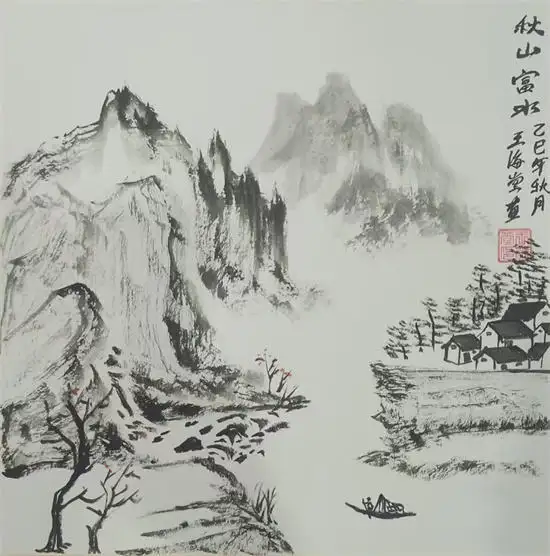 秋山富水
乙巳年秋月
王海堂画